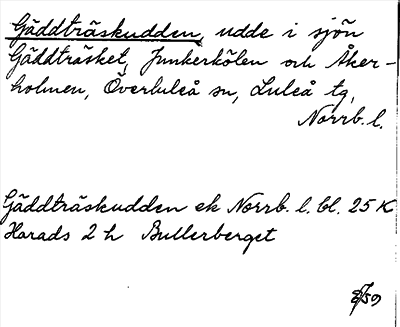 Gäddträskudden, udde i sjön
Gäddträsket, Junkerkölen och Åker-
holmen, Överluleå sn, Luleå tg,
Norrb. l.
Gäddträskudden ek Norrb. l. bl. 25 K
Harads 2 h Bullerberget